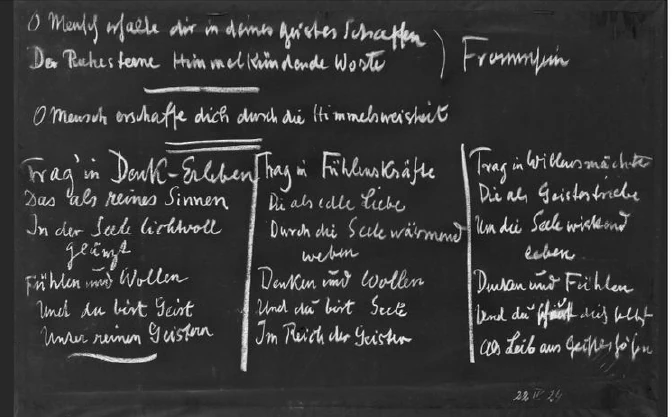 O Mensch erfasse dir in deines geistes Schaffen
Der Ruhesterne Himmelkündende Worte
Frommsein
O Mensch erschaffe dich durch die Himmelsweisheit
Trag' in Denk-Erleben
Das als reines Sinnen
In der Seele lichtvoll
glänzt
Fühlen und Wollen
Und du bist Geist
Unter reinen Geistern
Trag in Fühlenskräfte
Die als edle Liebe
Durch die Seele wärmend
weben
Denken und Wollen
Und du bist Seele
Im Reich der Geister
Trag in Willensmächte
Die als Geistestriebe
Um die Seele wirkend
leben
Denken und Fühlen
Und du dich selbst
Als Leib aus Geisteshöhen
24